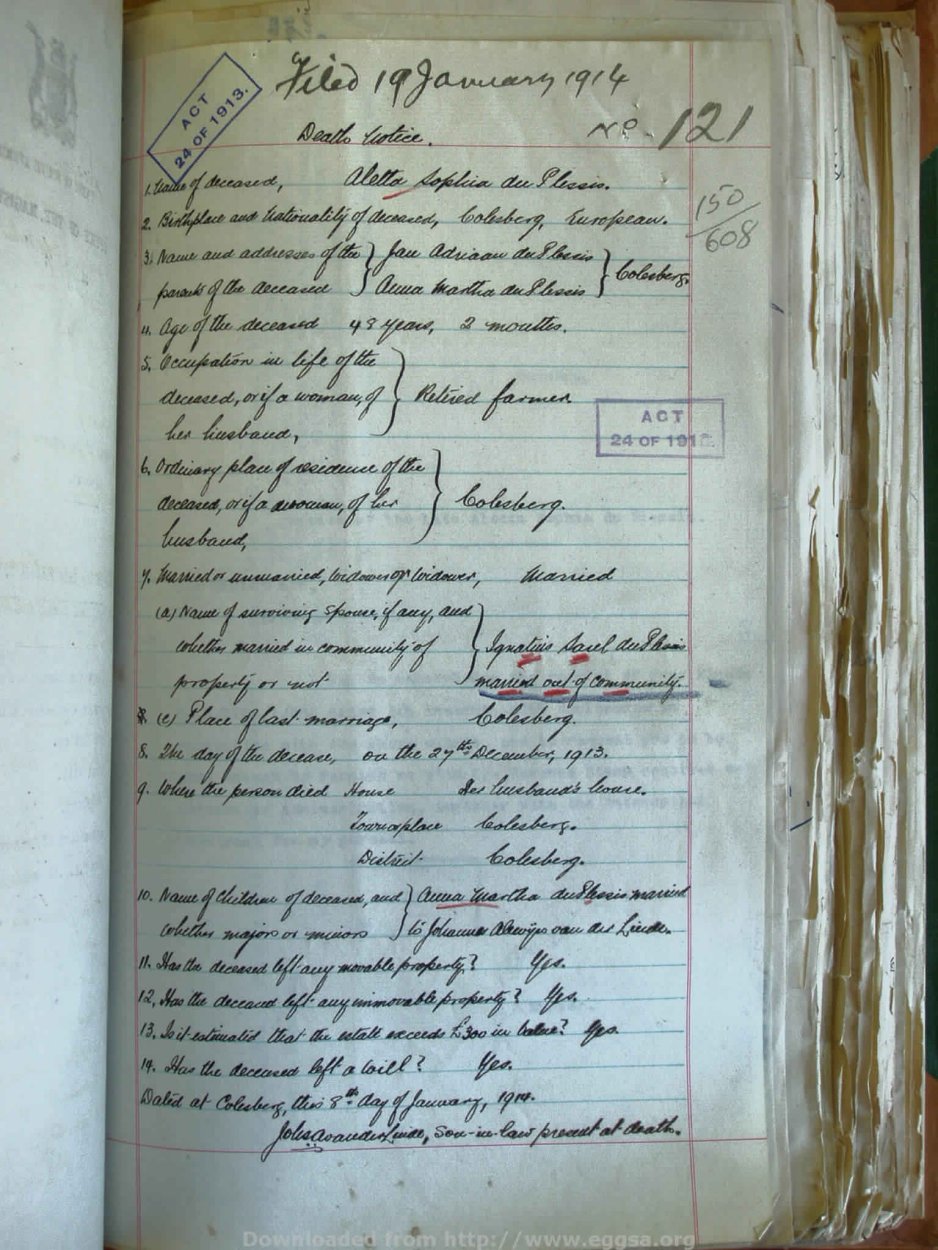 Filed 19 January 1914
ACT
24 OF 1913.
Death Notice.
No. 121
1. Name of deceased, Aletta Sophia du Plessis.
150
608
2. Birthplace and Nationality of deceased, Colesberg, European.
3. Name and addresses of the parents of the deceased } Jan Adriaan du Plessis
Anna Martha du Plessis } Colesberg.
4. Age of the deceased 48 years, 2 months.
5. Occupation in life of the
deceased, or if a woman, of } Retired farmer
her husband,
ACT
24 OF 1913.
6. Ordinary place of residence of the
deceased, or if a woman, of her } Colesberg.
husband,
7. Married or unmarried, widow or widower, Married
(a) Name of surviving spouse, if any, and
whether married in community of } Ignatius Sarel du Plessis
property or not married out of community.
(c) Place of last marriage, Colesberg.
8. The day of the decease, on the 27th December, 1913.
9. Where the person died House Her husband's house.
Town or place Colesberg.
District Colesberg.
10. Name of Children of deceased, and } Anna Martha du Plessis married
whether majors or minors } to Johannes van der Linde.
11. Has the deceased left any movable property? Yes.
12. Has the deceased left any immovable property? Yes.
13. Is it estimated that the estate exceeds £300 in value? Yes
14. Has the deceased left a Will? Yes.
Dated at Colesberg, this 8th day of January, 1914.
Johs A van der Linde, Son-in-law present at death.
Downloaded from http://www.eggsa.org